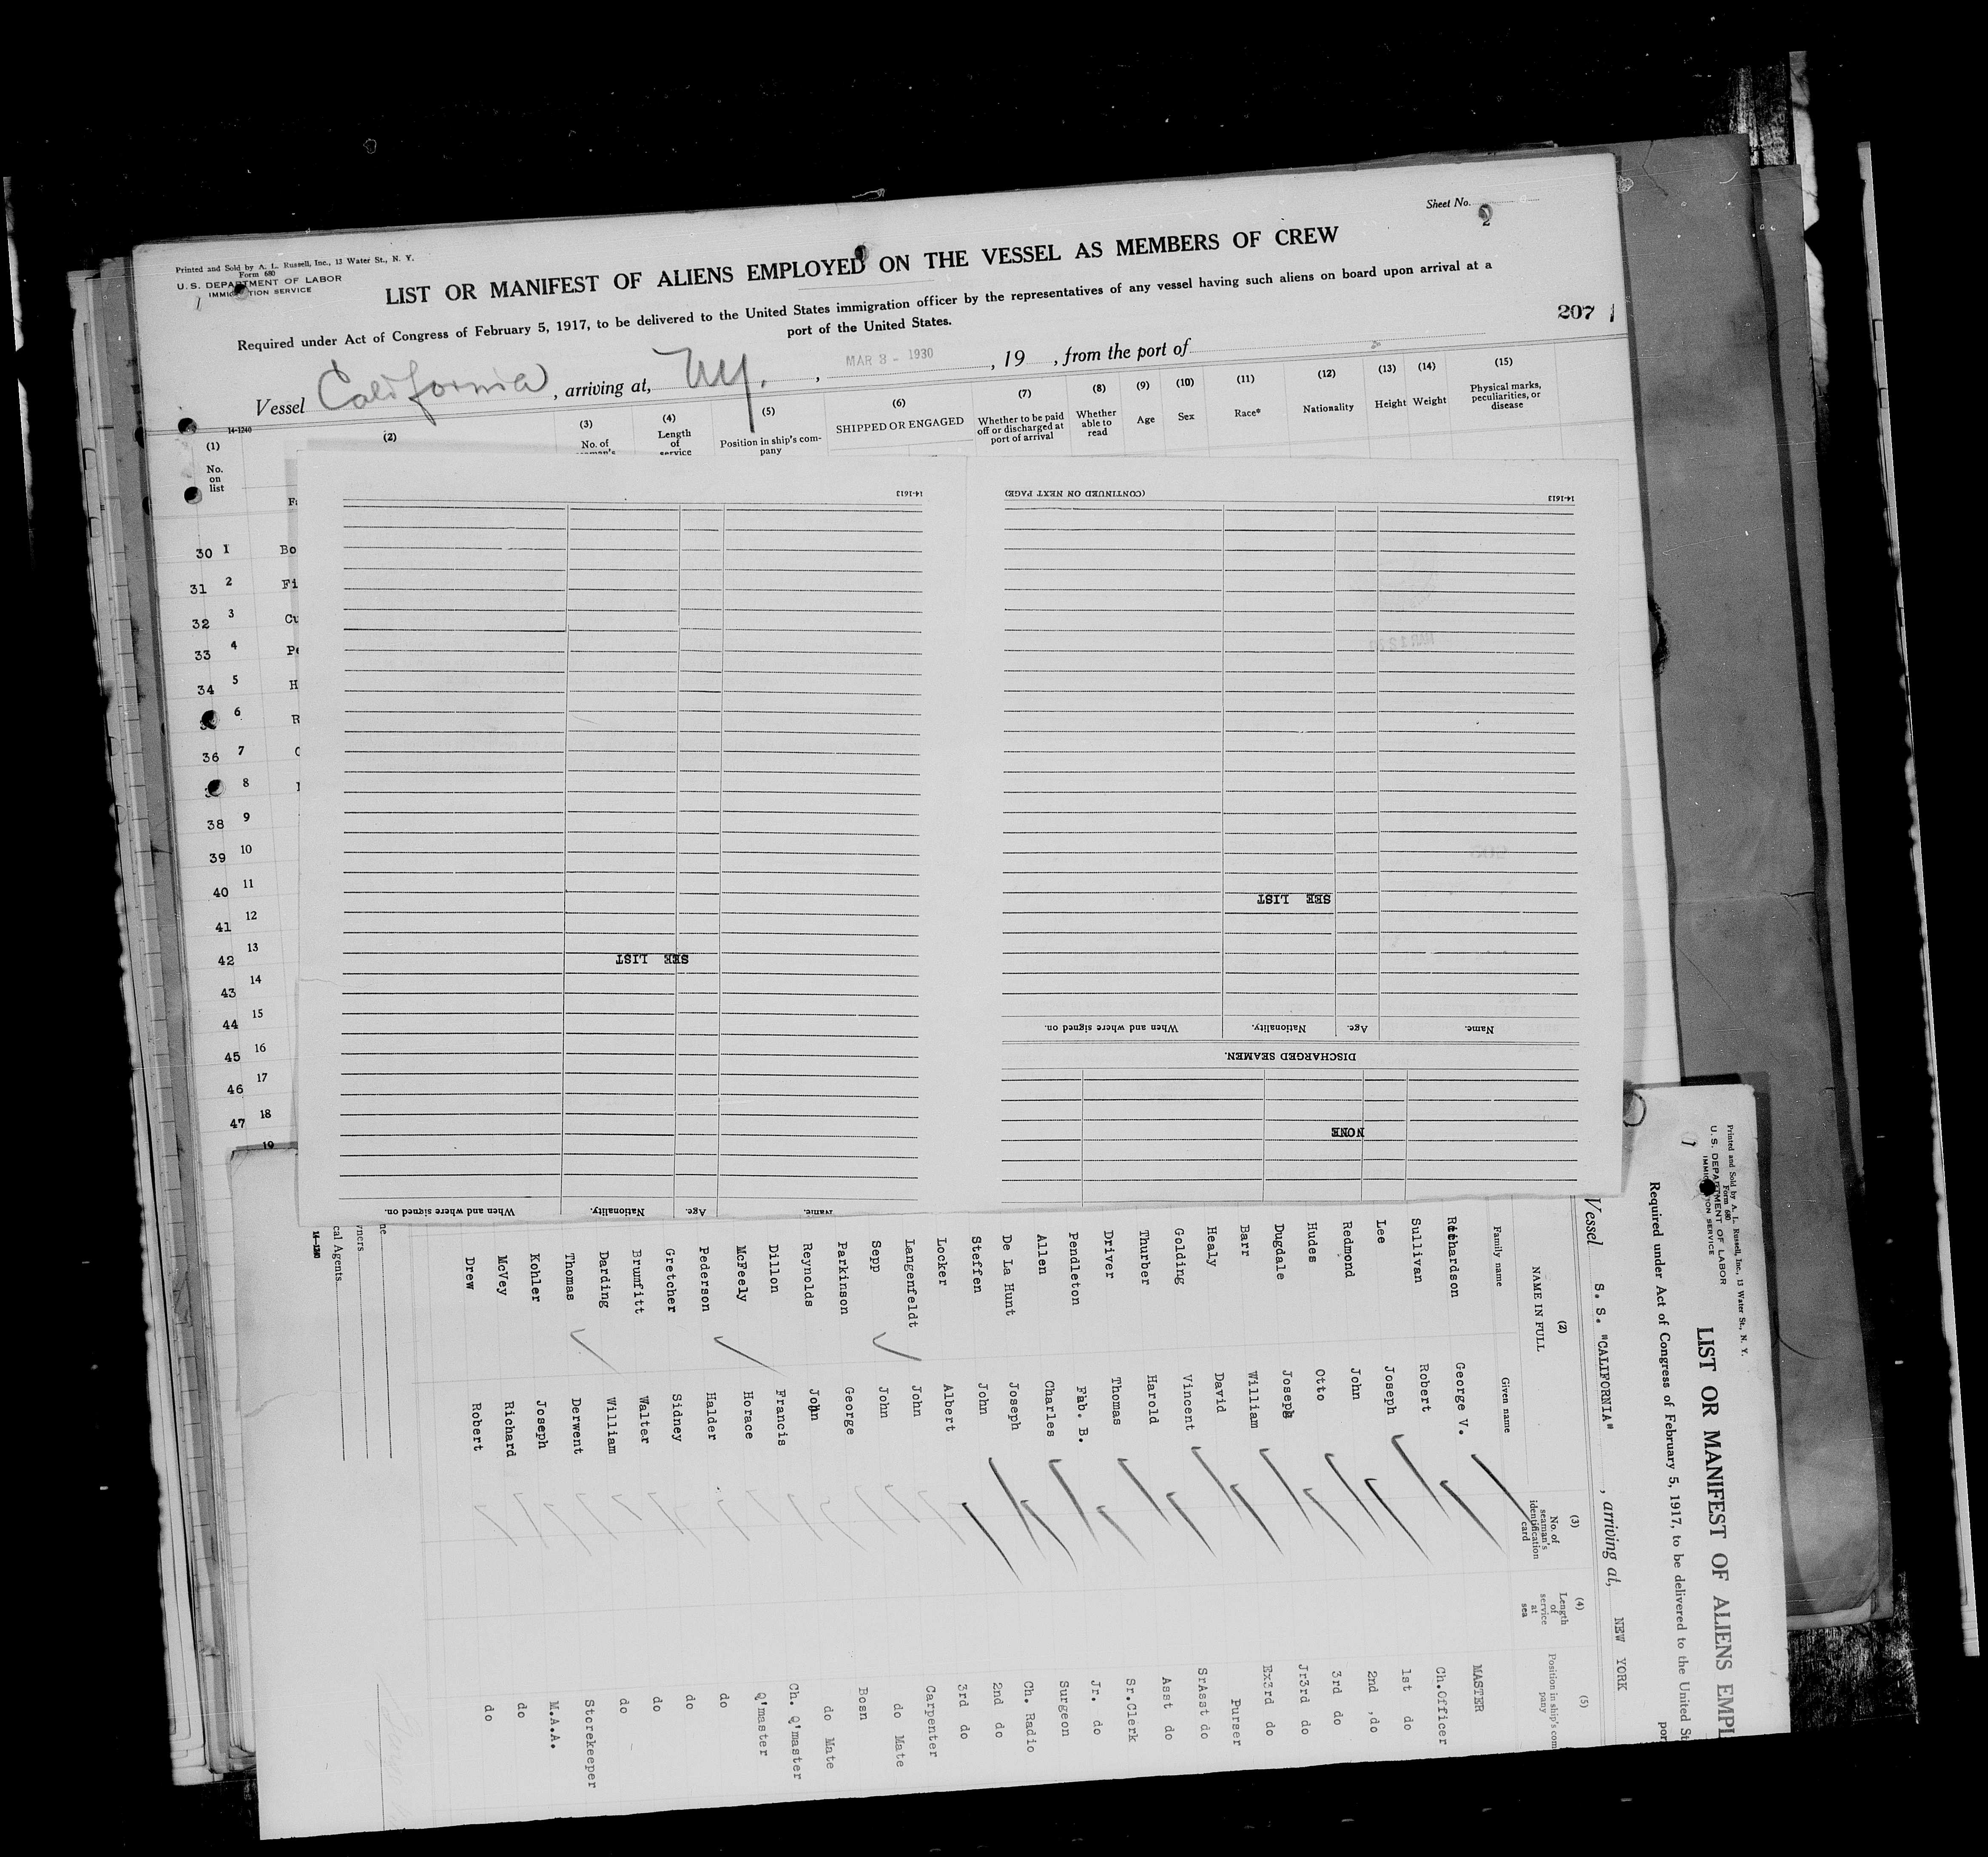 Sheet No. 2
Printed and Sold by A. L. Russell, Inc., 13 Water St., N. Y.
Form 680
U. S. DEPARTMENT OF LABOR
IMMIGRATION SERVICE
LIST OR MANIFEST OF ALIENS EMPLOYED ON THE VESSEL AS MEMBERS OF CREW
Required under Act of Congress of February 5, 1917, to be delivered to the United States immigration officer by the representatives of any vessel having such aliens on board upon arrival at a
port of the United States.
207
Vessel California, arriving at, NY., MAR 3 - 1930, 19 , from the port of
14-1240
(1) (2) (3) (4) (5) (6) (7) (8) (9) (10) (11) (12) (13) (14) (15)
No. on list
No. of seaman's
Length of service
Position in ship's company
SHIPPED OR ENGAGED
Whether to be paid off or discharged at port of arrival
Whether able to read
Age
Sex
Race*
Nationality
Height
Weight
Physical marks, peculiarities, or disease
30 1 Bo
31 2 Fi
32 3 Cu
33 4 Pe
34 5 H
6 R
36 7
8
38 9
39 10
40 11
41 12
42 13
43 14
44 15
45 16
46 17
47 18
19
Name. Age. Nationality. When and where signed on.
NONE
DISCHARGED SEAMEN.
Name. Age. Nationality. When and where signed on.
SEE LIST
14-1613 (CONTINUED ON NEXT PAGE)
Name. Age. Nationality. When and where signed on.
SEE LIST
14-1613
Printed and Sold by A. L. Russell, Inc., 13 Water St., N. Y.
Form 680
U. S. DEPARTMENT OF LABOR
IMMIGRATION SERVICE
LIST OR MANIFEST OF ALIENS EMPL
Required under Act of Congress of February 5, 1917, to be delivered to the United St
por
Vessel S. S. "CALIFORNIA", arriving at, NEW YORK
(2) (3) (4) (5)
NAME IN FULL
Family name
Given name
No. of seaman's identification card
Length of service at sea
Position in ship's company
Richardson George V. MASTER
Sullivan Robert Ch.Officer
Lee Joseph 1st do
Redmond John 2nd ,do
Hudes Otto 3rd do
Dugdale Joseph Jr3rd do
Barr William Ex3rd do
Healy David Purser
Golding Vincent SrAsst do
Thurber Harold Asst do
Driver Thomas Sr.Clerk
Pendleton Fab. B. Jr. do
Allen Charles Surgeon
De La Hunt Joseph Ch. Radio
Steffen John 2nd do
Locker Albert 3rd do
Langenfeldt John Carpenter
Sepp John do Mate
Parkinson George Bosn
Reynolds John do Mate
Dillon Francis Ch. Q'master
McFeely Horace Q'master
Pederson Halder do
Gretcher Sidney do
Brumfitt Walter do
Darding William do
Thomas Derwent Storekeeper
Kohler Joseph M.A.A.
McVey Richard do
Drew Robert do
ne
wners
cal Agents
14-1240